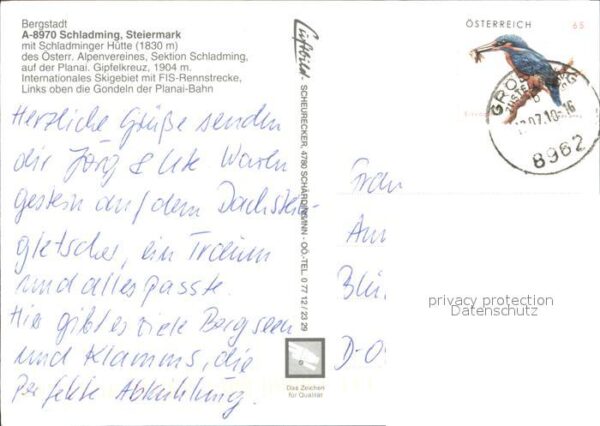 Bergstadt
A-8970 Schladming, Steiermark
mit Schladminger Hütte (1830 m)
des Österr. Alpenvereines, Sektion Schladming,
auf der Planai. Gipfelkreuz, 1904 m.
Internationales Skigebiet mit FIS-Rennstrecke,
Links oben die Gondeln der Planai-Bahn
Herzliche Grüße senden
dir Jörg & Ute Waren
gestern auf dem Dachstein-
gletscher, ein Traum
und alles passte.
Hier gibt es viele Bergseen
und Klamms, die
Perfekte Abkühlung.
Luftbild - SCHEURECKER, 4780 SCHÄRDING/INN - OÖ.-TEL. 0 77 12 / 23 29
Das Zeichen
für Qualität
ÖSTERREICH 65
07.10-16
8962
Frau
Blü
D-0
privacy protection
Datenschutz